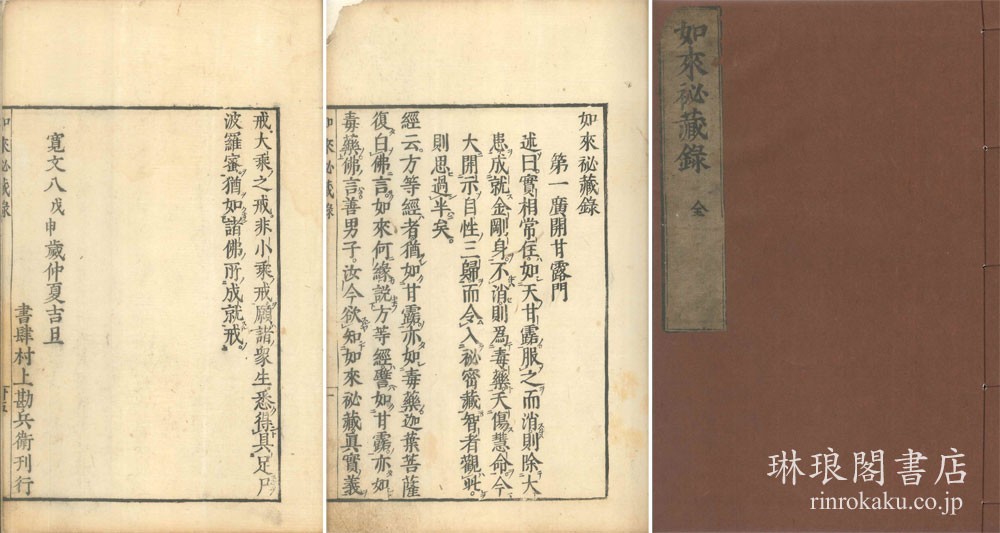 戒大乘之戒非小乘戒願諸衆生悉得具足尸
波羅蜜猶如諸佛所成就戒
寛文八戊申歲仲夏吉旦
書肆村上勘兵衛刊行
如來祕藏錄
如來祕藏錄
第一廣開甘露門
述曰實相常住如天甘露服之而消則除大
患成就金剛身不消則為毒藥夭傷慧命今
大開示自性三歸而令入祕密藏智者觀此
則思過半矣
經云方等經者猶如甘露亦如毒藥迦葉菩薩
復白佛言如來何緣說方等經譬如甘露亦如
毒藥佛言善男子汝今欲知如來祕藏眞實義
如來祕藏錄
一
如來祕藏錄 全
琳琅閣書店
rinrokaku.co.jp